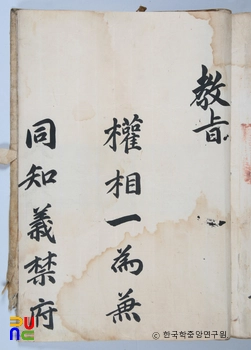 教旨
權相一為兼
同知義禁府
ⓒ 한국학중앙연구원